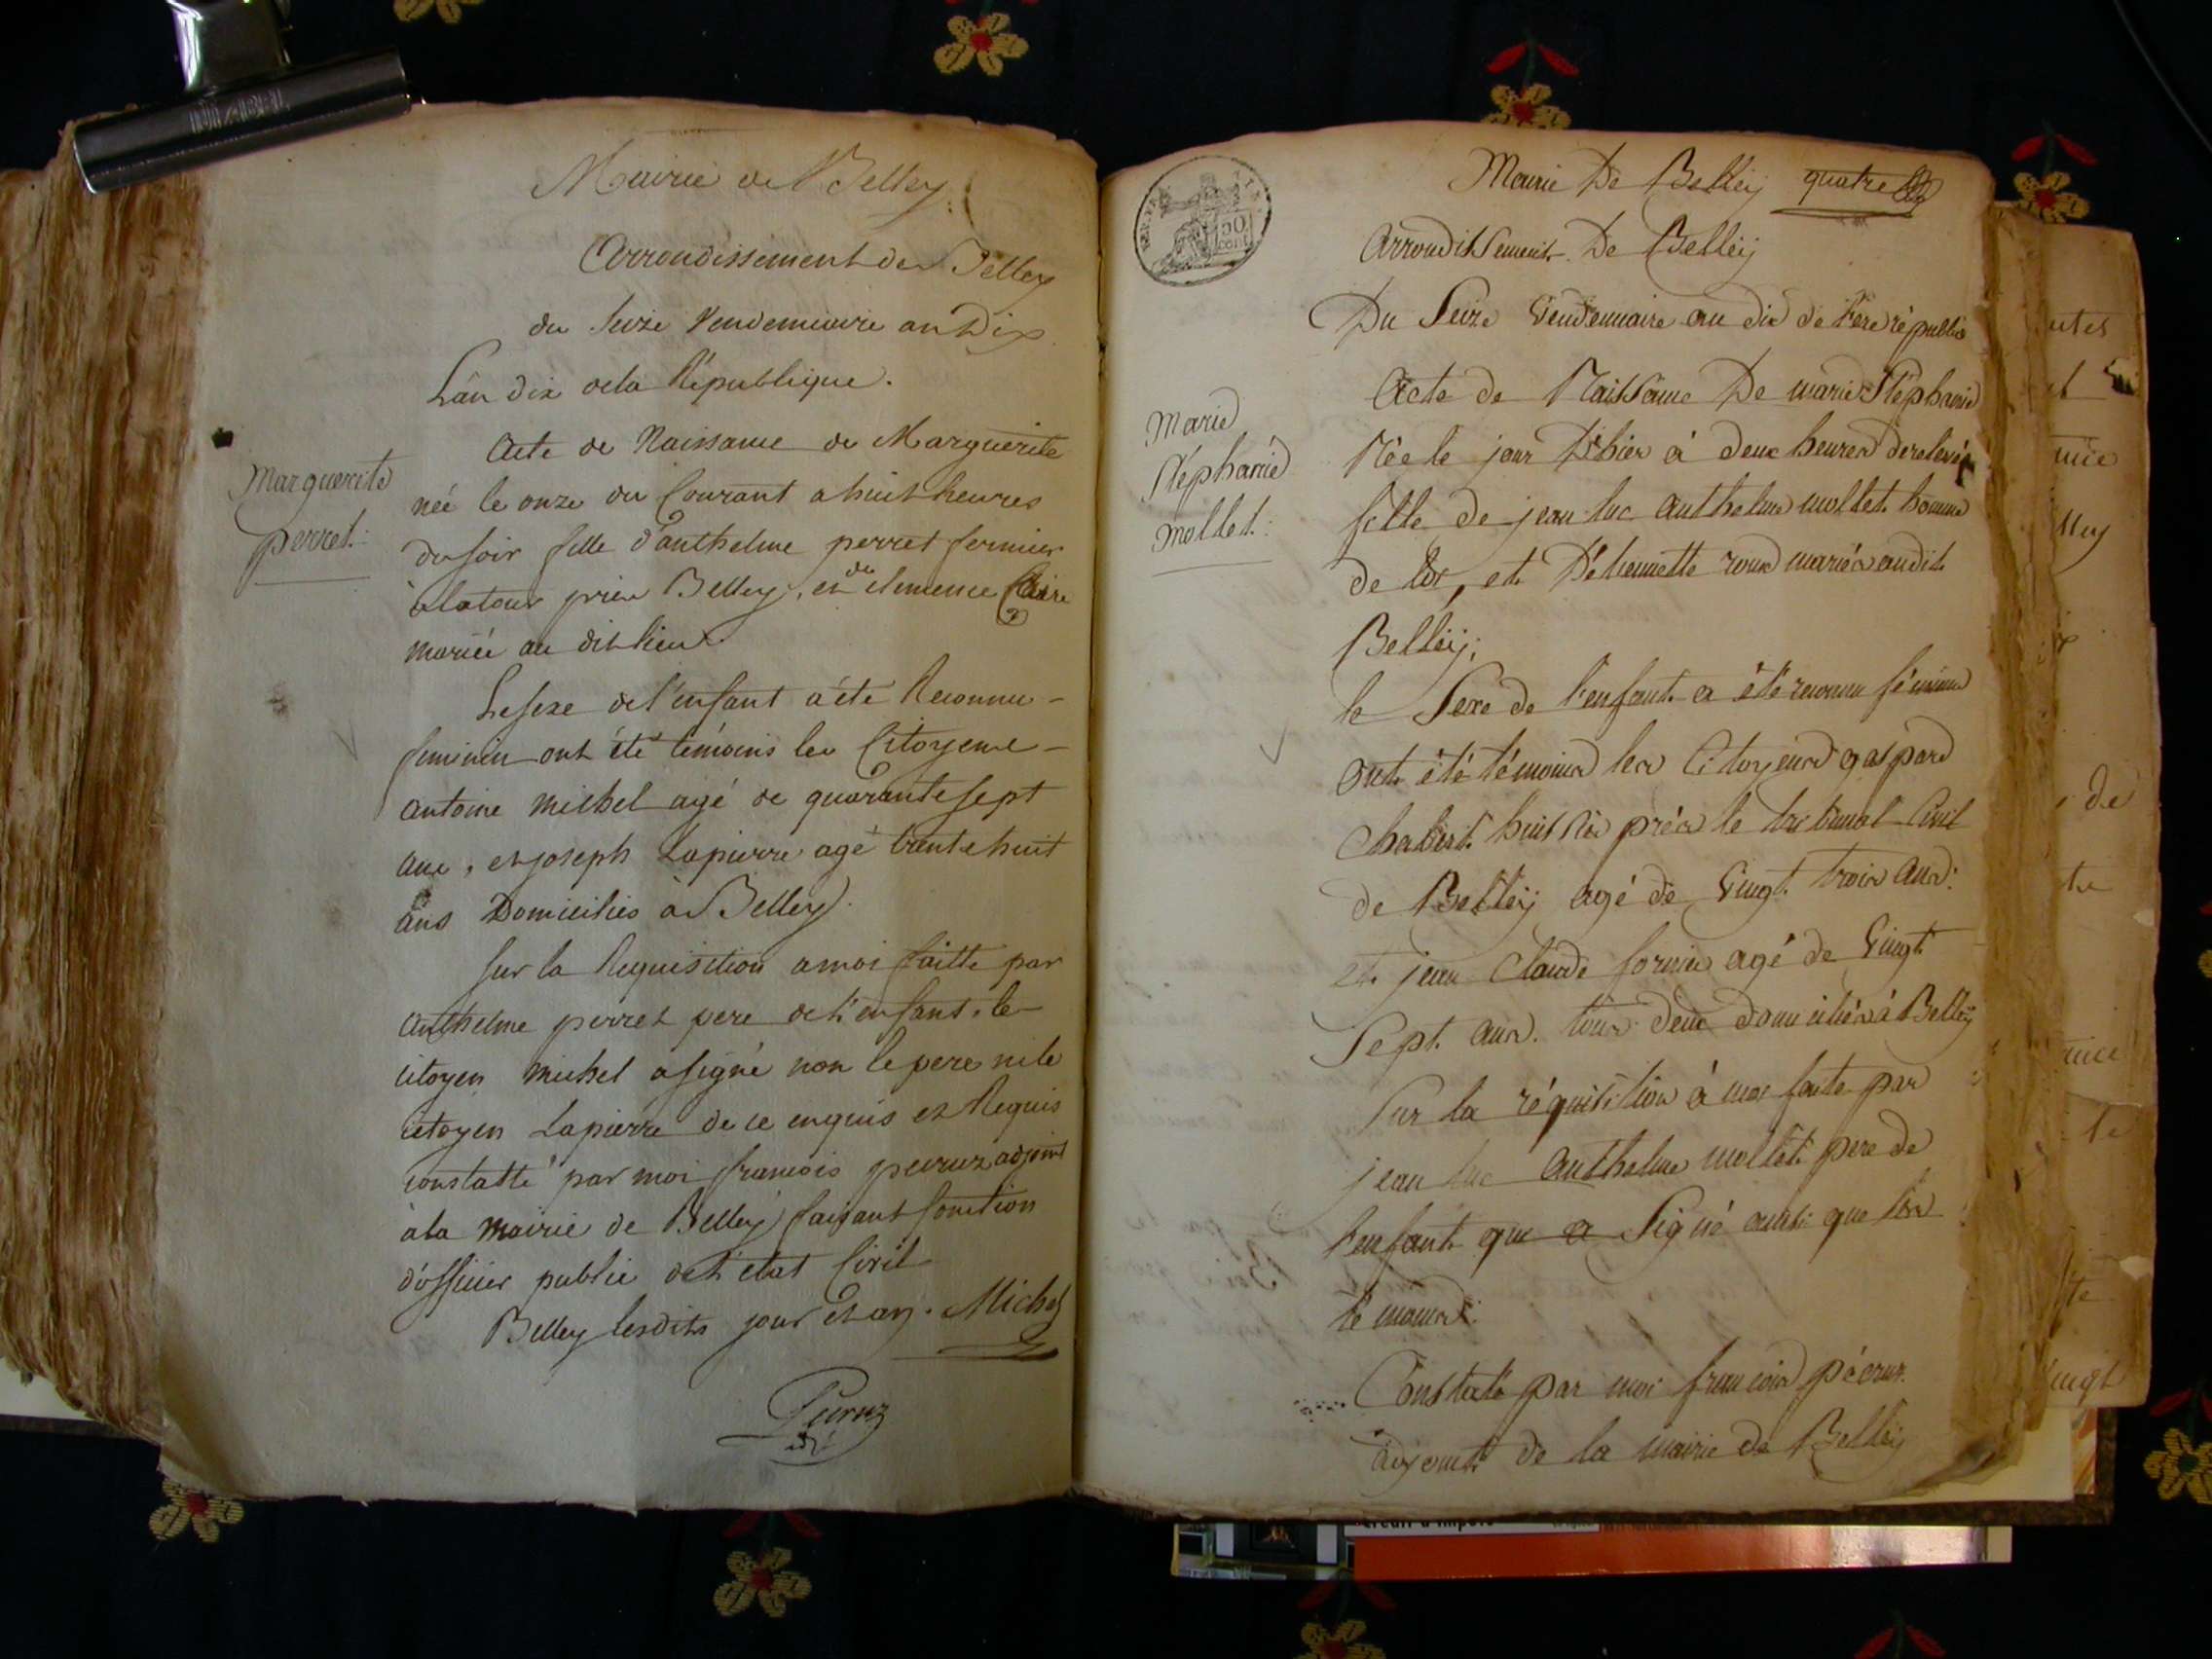 Mairie de Belley
Arrondissement de Belley
du Seize Vendemiaire an Dix
L'an dix de la République.
Acte de Naissance de Marguerite
née le onze du Courant a huit heures
du soir fille d'anthelme perret fermier
à la tour près Belley, et de clemence Claire
mariés au dit lieu.
Marguerite
perret.
Le sexe de l'enfant a été Reconnu
feminin ont été témoins les Citoyens
antoine michel agé de quarante sept
ans, et joseph Lapierre agé trente huit
ans Domiciliés à Belley.
sur la Requisition a moi faitte par
anthelme perret pere de l'enfant, le
citoyen michel a signé non le pere ni le
citoyen Lapierre de ce enquis et Requis
constatté par moi francois adjoint
à la mairie de Belley faisant fonction
d'officier public de l'état Civil
Belley lesdits jour et an. Michel
Mairie De Belleÿ quatre
Arrondissement De Belleÿ
Du Seize Vendemiaire an dix de l'ere républic
Acte de Naissance De marie Stéphanie
Née le jour D'hier à deux heures de relevée
fille de jean luc anthelme mollet homme
de loi, et D'étiennette roux mariés audit
Belleÿ;
Marie
Stéphanie
mollet.
50
cent
le Sexe de l'enfant a été reconnu féminin
ont été témoins les Citoyens gaspard
Chabert huissier près le tribunal Civil
de Belleÿ agé de Vingt trois ans.
et jean Claude fornier agé de Vingt
Sept ans. tous deux domiciliés à Belleÿ
Sur la réquisition à moi faite par
jean luc anthelme mollet pere de
l'enfant qui a Signé ainsi que les
témoins.
Constaté par moi francois
adjoint de la mairie de Belleÿ